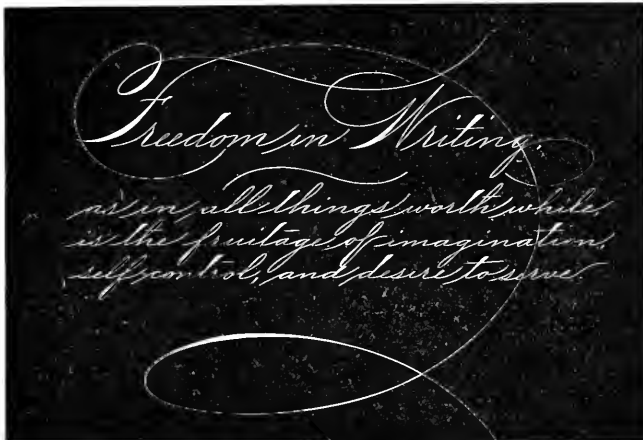 Freedom in Writing,
as in all things worth while,
is the fruitage of imagination,
self control, and desire to serve.